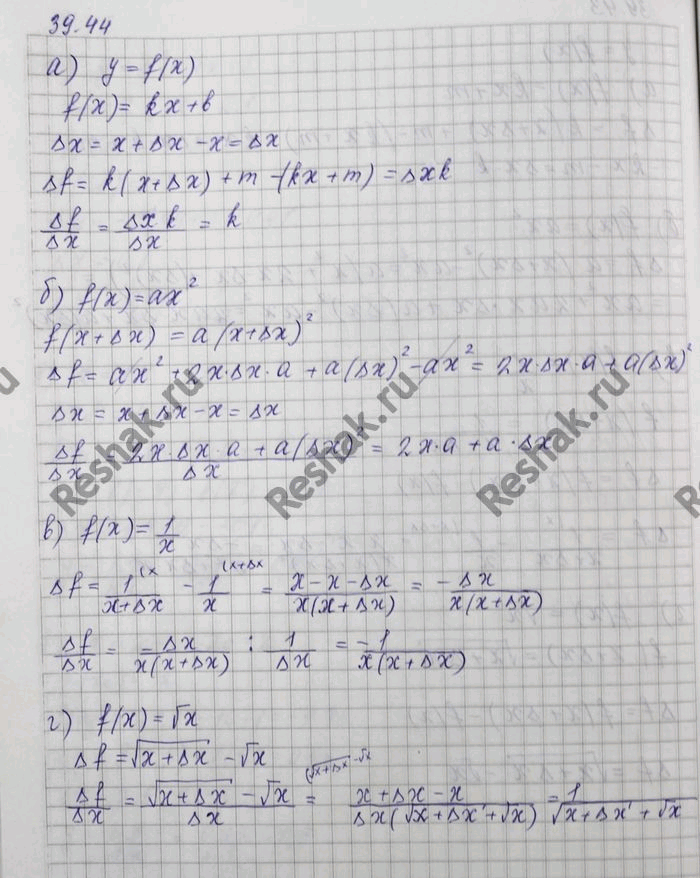 39.44
а) y = f(x)
f(x) = kx + b
Δx = x + Δx - x = Δx
Δf = k(x + Δx) + m - (kx + m) = Δxk
Δf/Δx = Δxk/Δx = k
б) f(x) = ax²
f(x + Δx) = a(x + Δx)²
Δf = ax² + 2x·Δx·a + a(Δx)² - ax² = 2x·Δx·a + a(Δx)²
Δx = x + Δx - x = Δx
Δf/Δx = (2x·Δx·a + a(Δx)²)/Δx = 2x·a + a·Δx
в) f(x) = 1/x
Δf = 1^(x/(x + Δx) - 1^(x+Δx/x = (x - x - Δx)/(x(x + Δx)) = -Δx/(x(x + Δx))
Δf/Δx = -Δx/(x(x + Δx)) : 1/Δx = -1/(x(x + Δx))
г) f(x) = √x
Δf = √(x + Δx) - √x
Δf/Δx = (√(x + Δx) - √x)/Δx ^(√(x+Δx) - √x = (x + Δx - x)/(Δx(√(x + Δx) + √x)) = 1/(√(x + Δx) + √x)
Reshak.ru
Reshak.ru
Reshak.ru